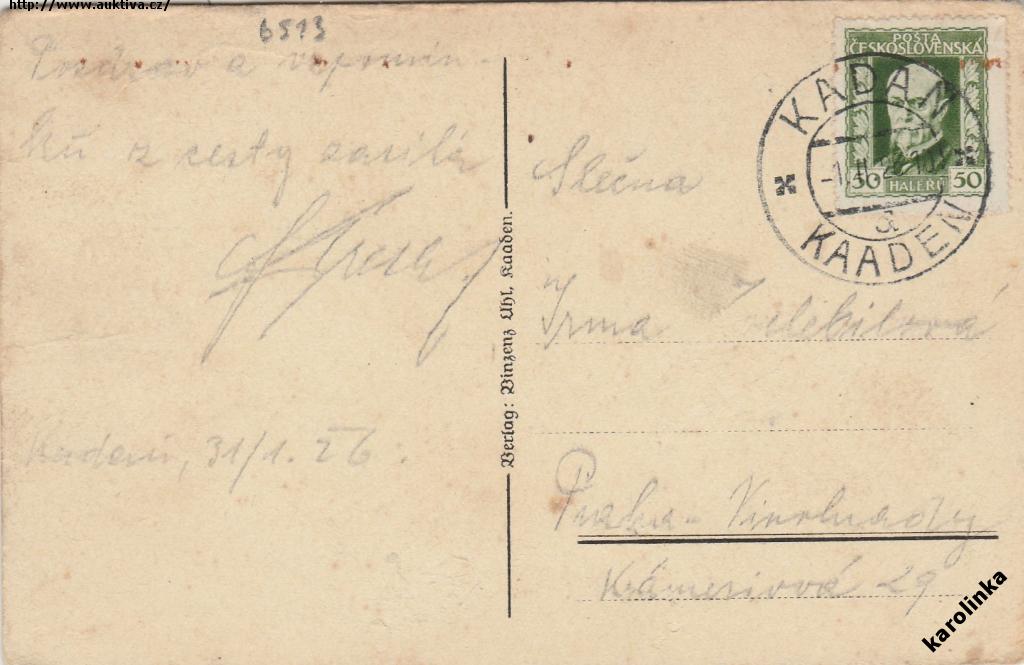 http://www.auktiva.cz/
6513
Pozdrav a vzpomín-
ku z cesty zasílá
Kadaň, 31/1. 26.
Verlag: Vinzenz Uhl, Kaaden.
POŠTA
ČESKOSLOVENSKÁ
50 HALÉŘŮ 50
KADAŇ
-1.II.26.10
a
KAADEN
Slečna
Irma
Praha-Vinohrady
Krameriova 29
karolinka